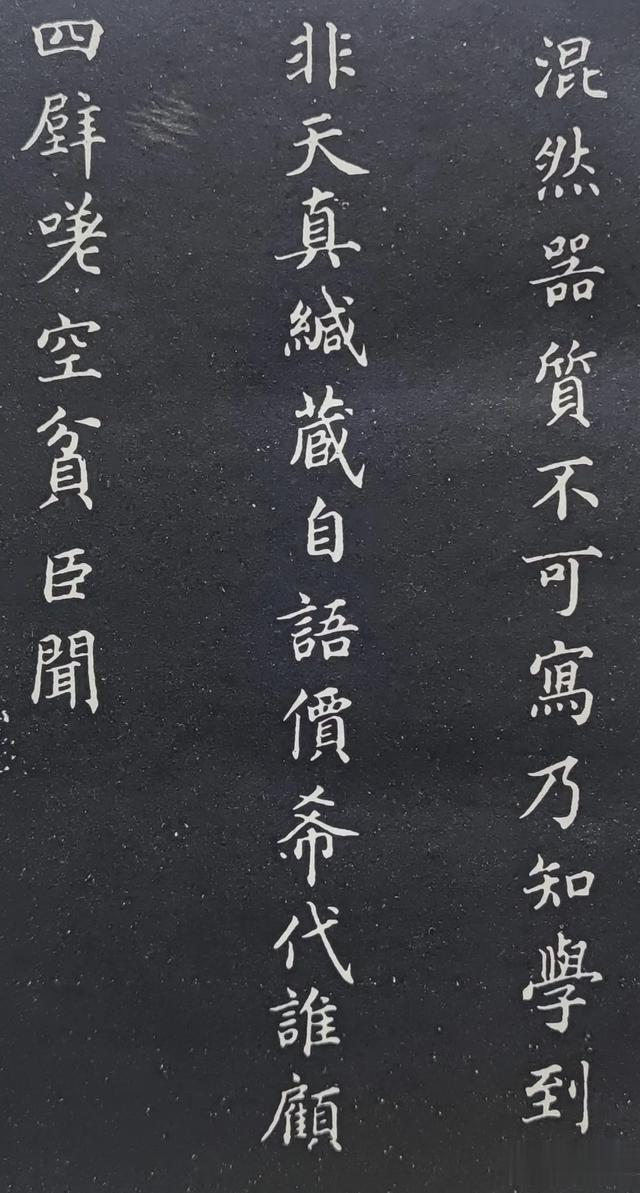 混然噐質不可寫乃知學到
非天真緘蔵自語價希代誰顧
四壁嗟空貧臣聞